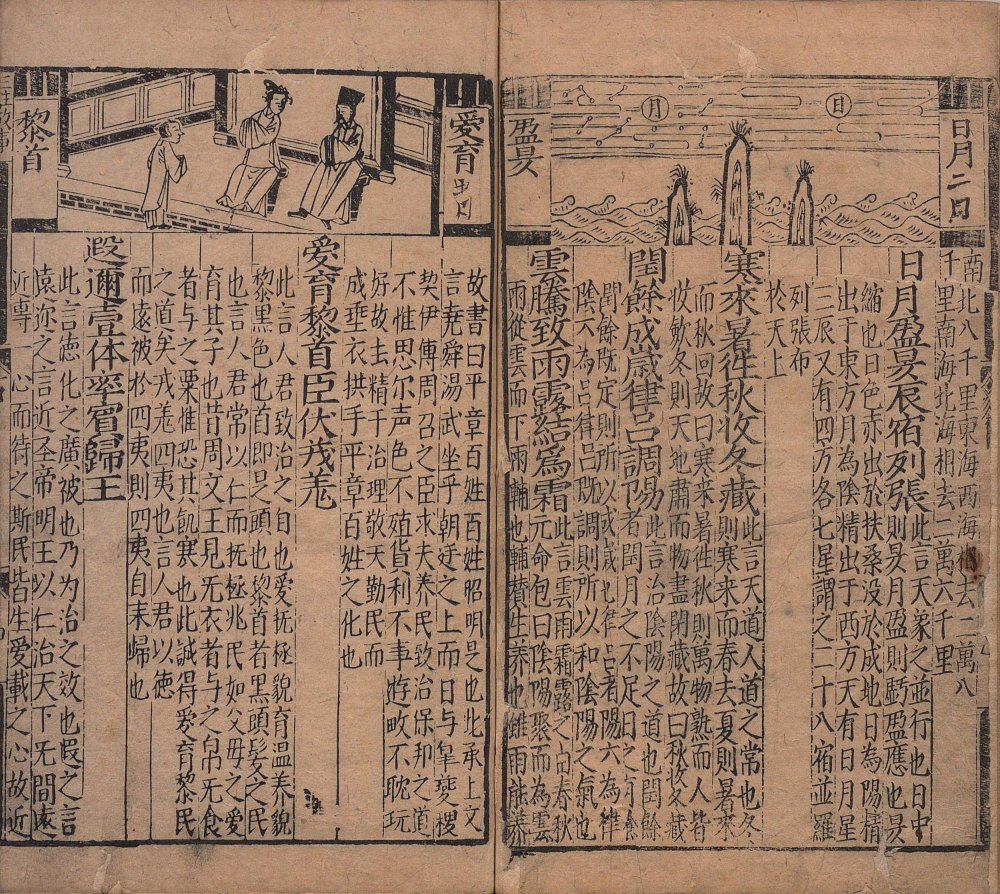 日月二日
日
月
盈昃
南北八千里東海西海相去二萬八
千里南海北海相去二萬六千里
日月盈昃辰宿列張此言天象之並行也日中
則昃月盈則虧盈應也昃
縮也日色赤出於扶桑没於成地日為陽精
出于東方月為陰精出于西方天有日月星
三辰又有四方各七星謂之二十八宿並羅
列張布
於天上
寒來暑徃秋收冬藏此言天道人道之常也冬
則寒来而春去夏則暑來
而秋回故曰寒来暑徃秋則萬物熟而人皆
收斂冬則天地肅而物盡閉藏故曰秋收冬藏
閏餘成歲律吕調陽此言治陰陽之道也閏餘
者閏月之不足日之
閏餘既定則所以成歲也律吕者陽六為律
陰六為吕律吕既調則所以和陰陽之氣也
雲騰致雨露結為霜此言雲雨霜露之白春秋
元命包曰陰陽聚而為雲
雨從雲而下雨輔也輔賛生养也雖雨能养
愛育
黎首
故書曰平章百姓百姓昭明是也此承上文
言尭舜湯武坐乎朝廷之上而日与皐夔稷
契伊傅周召之臣求夫养民致治保邦之道
不惟思尔声色不殖貨利不事遊畋不耽玩
好故去精于治理敬天勤民而
成垂衣拱手平章百姓之化也
爱育黎首臣伏戎羌
此言人君致治之自也爱抚極貌育温养貌
黎黒色也首即是頭也黎首者黒頭髮之民
也言人君常以仁而抚極兆民如父母之爱
育其子也昔周文王見旡衣者与之帛旡食
者与之粟惟恐其飢寒也此誠得爱育黎民
之道矣戎羗四夷也言人君以德
而遠被於四夷則四夷自来歸也
遐邇壹体率賓歸王
此言徳化之廣被也乃为治之效也遐之言
遠迩之言近圣帝明王以仁治天下旡間遠
近專心而待之斯民皆生爱載之心故近